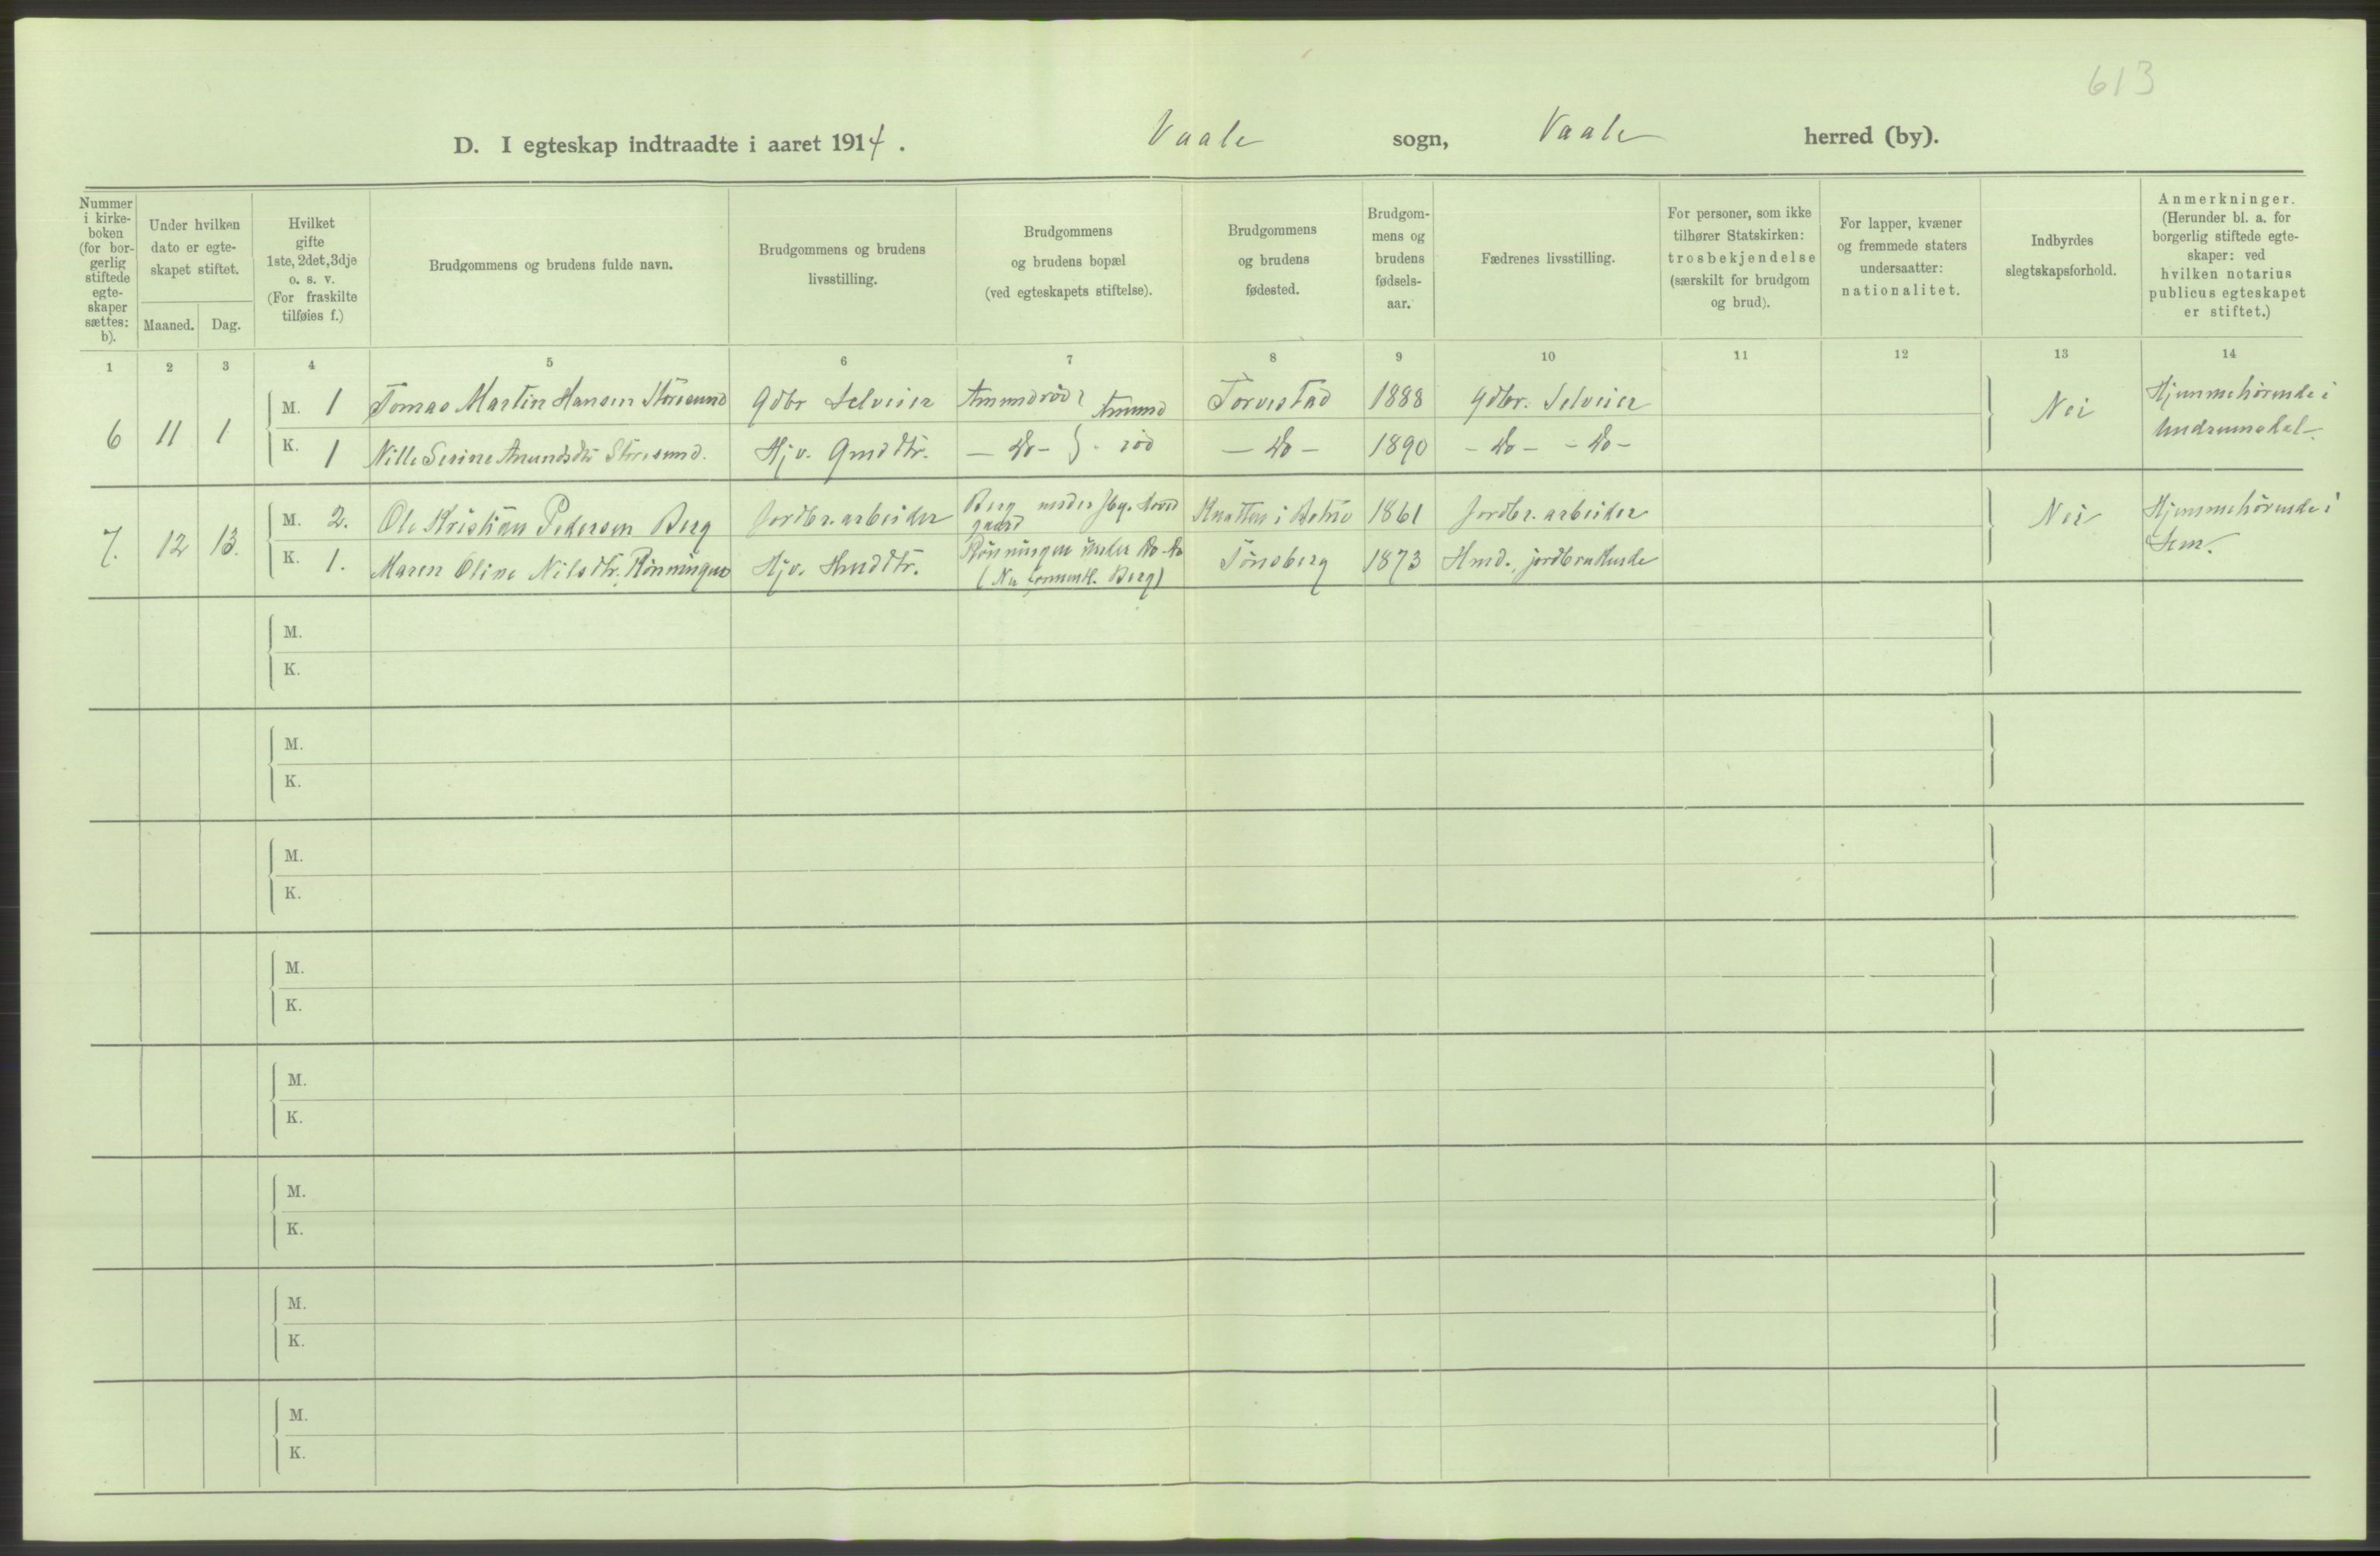 613
D. I egteskap indtraadte i aaret 1914. Vaale sogn, Vaale herred (by).
Nummer i kirke- boken (for bor- gerlig stiftede egte- skaper sættes: b).
Under hvilken dato er egte- skapet stiftet.
Maaned. Dag.
Hvilket gifte 1ste, 2det, 3dje o. s. v. (For fraskilte tilføies f.)
Brudgommens og brudens fulde navn.
Brudgommens og brudens livsstilling.
Brudgommens og brudens bopæl (ved egteskapets stiftelse).
Brudgommens og brudens fødested.
Brudgom- mens og brudens fødsels- aar.
Fædrenes livsstilling.
For personer, som ikke tilhører Statskirken: trosbekjendelse (særskilt for brudgom og brud).
For lapper, kvæner og fremmede staters undersaatter: nationalitet.
Indbyrdes slegtskapsforhold.
Anmerkninger. (Herunder bl. a. for borgerlig stiftede egte- skaper: ved hvilken notarius publicus egteskapet er stiftet.)
1 2 3 4 5 6 7 8 9 10 11 12 13 14
6 11 1 M. 1 Tomas Martin Hansen Storesund Gdbr Selveier Amundrød Amund Torvestad 1888 Gdbr. Selveier Nei Hjemmehørende i
K. 1 Nille Serine Amundsdtr Storesund. Hjv. Gmddtr. — Do — } - rød — Do — 1890 — Do — — Do — Undrumsdal.
7. 12 13. M. 2. Ole Kristian Pedersen Berg Jordbr. arbeider Berg under gaard Knatten i Botne 1861 Jordbr. arbeider Nei Hjemmehørende i
K. 1. Maren Oline Nilsdtr. Rønningen Hjv. Hmddtr. Rønningen under Do - Do (Nu Berg) Tønsberg 1873 Hmd., jordbrukende Sem.
M.
K.
M.
K.
M.
K.
M.
K.
M.
K.
M.
K.
M.
K.
M.
K.